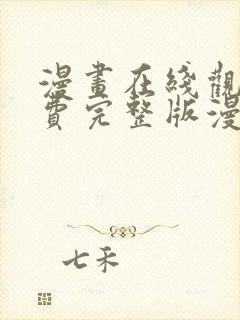 漫畫在綫觀
費完整版漫
七禾